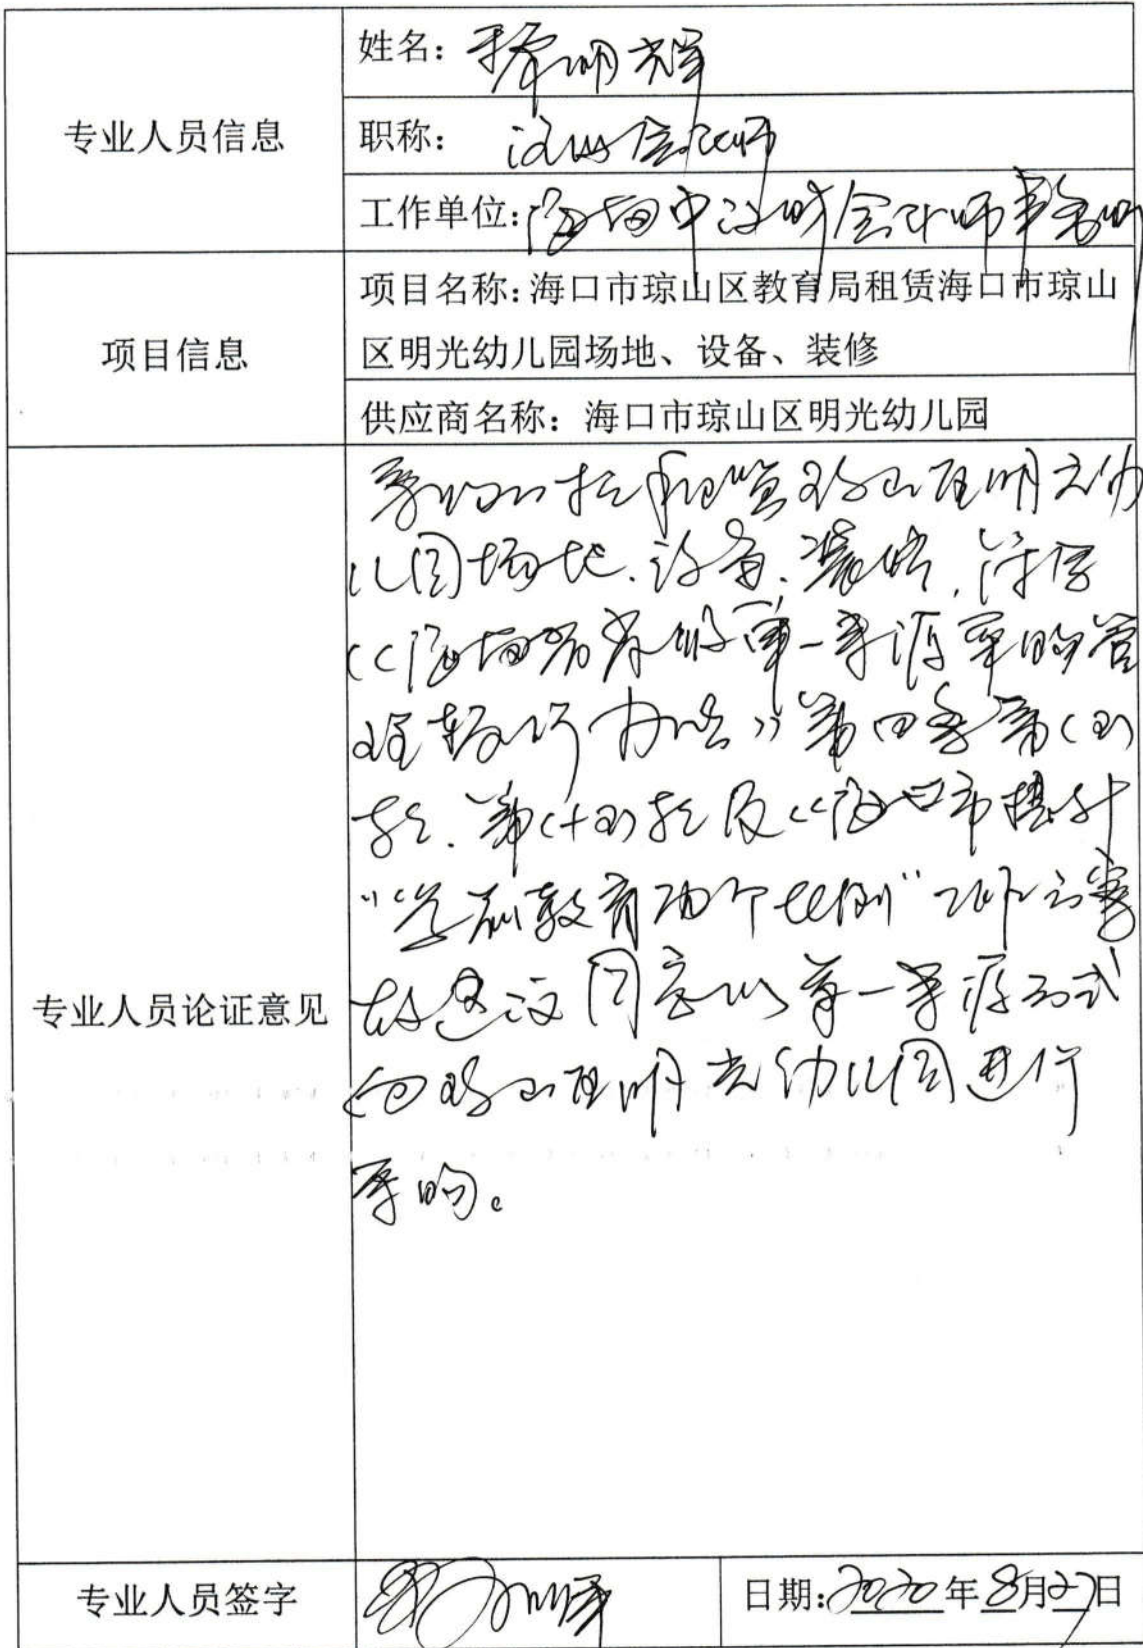 专业人员信息
姓名：明辉
职称：注册会计师
工作单位：海南中诚会计师事务所
项目信息
项目名称：海口市琼山区教育局租赁海口市琼山
区明光幼儿园场地、设备、装修
供应商名称：海口市琼山区明光幼儿园
专业人员论证意见
租赁琼山区明光幼
儿园场地、设备、装修，符合
《海南省省级单一来源采购管
理暂行办法》第四条第(五)
款、第(十五)款及《海口市提升
“学前教育两个比例”工作方案
故建议同意以单一来源方式
向琼山区明光幼儿园进行
采购。
专业人员签字
日期：2020年8月27日